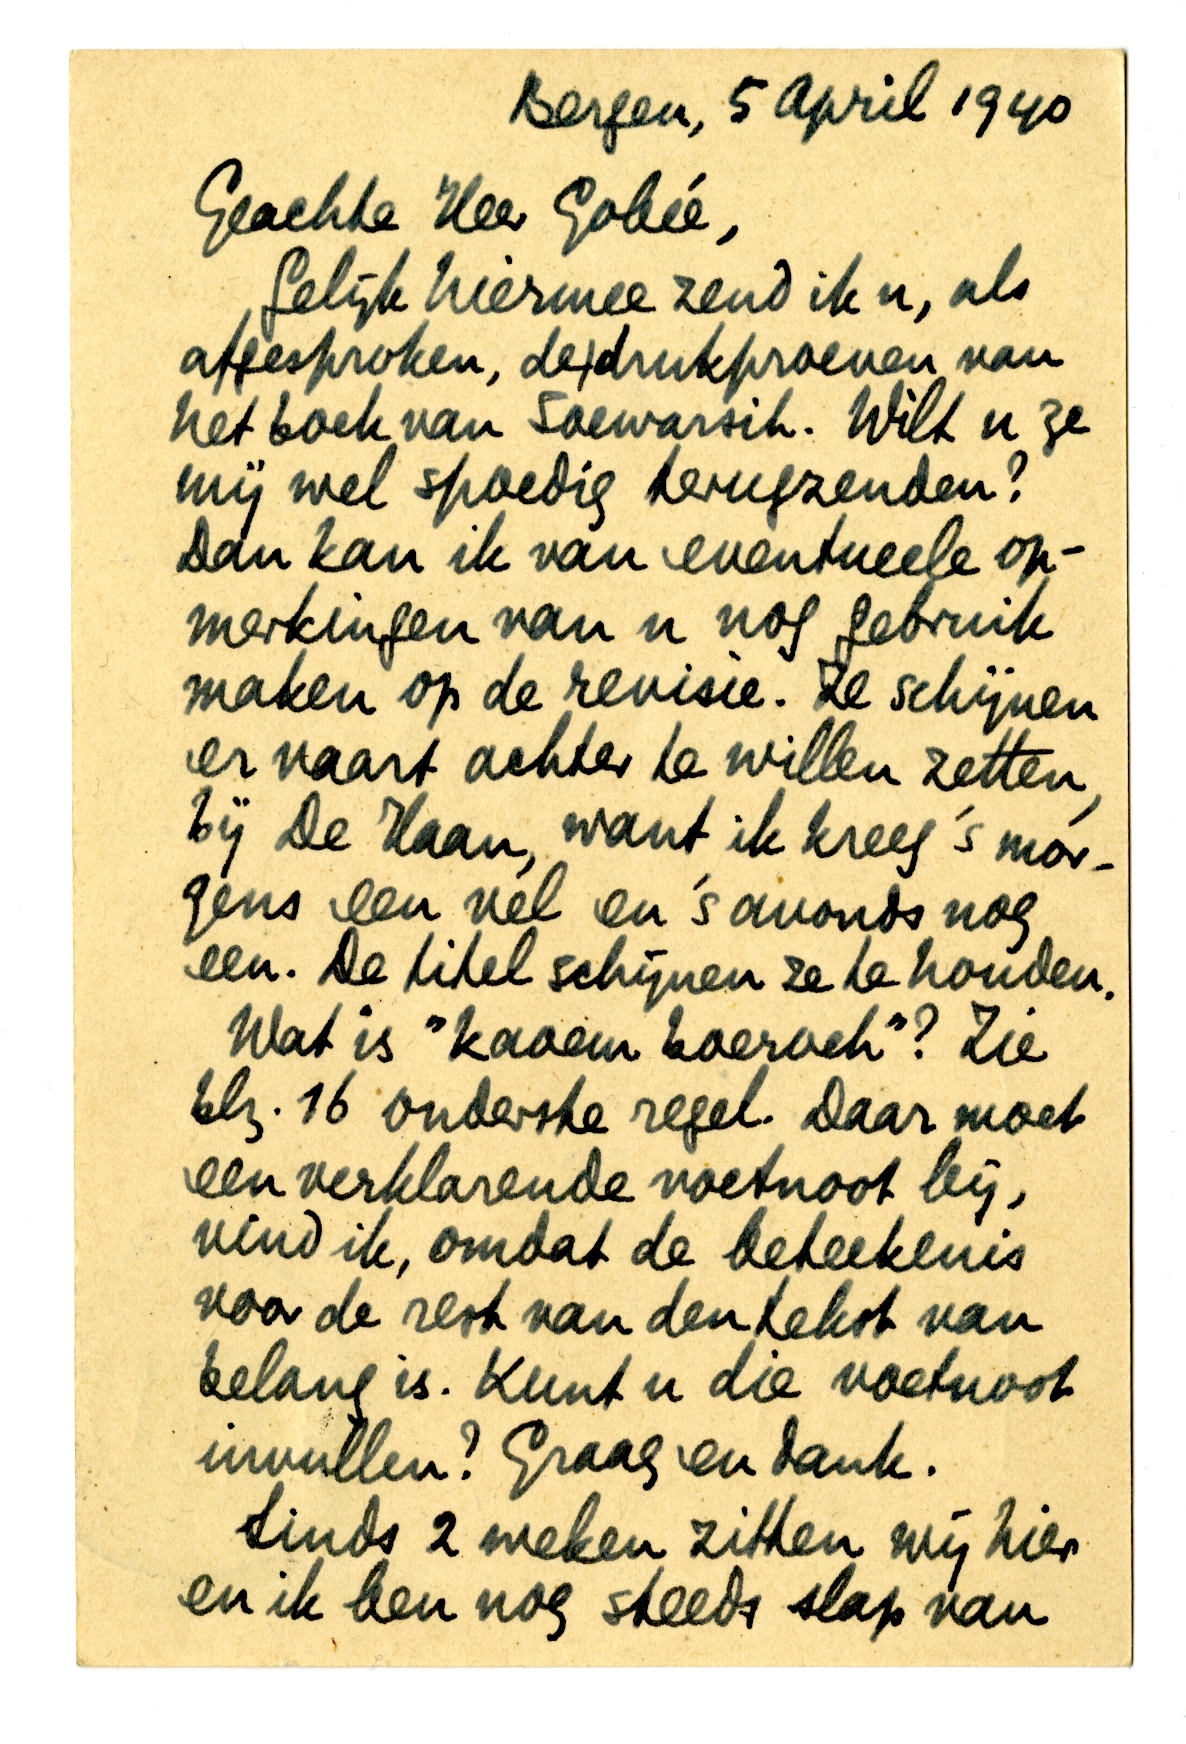 Bergen, 5 April 1940
Geachte Heer Gobée,
Gelijk hiermee zend ik u, als
afgesproken, de drukproeven van
het boek van Soewarsih. Wilt u ze
mij wel spoedig terugzenden?
Dan kan ik van eventueele op-
merkingen van u nog gebruik
maken op de revisie. Ze schijnen
er vaart achter te willen zetten,
bij De Haan, want ik kreeg 's mor-
gens een vel en 's avonds nog
een. De titel schijnen ze te houden.
Wat is "kaoem boeroeh"? Zie
blz. 16 onderste regel. Daar moet
een verklarende voetnoot bij,
vind ik, omdat de beteekenis
voor de rest van den tekst van
belang is. Kunt u die voetnoot
invullen? Graag en dank.
Sinds 2 weken zitten wij hier
en ik ben nog steeds slap van